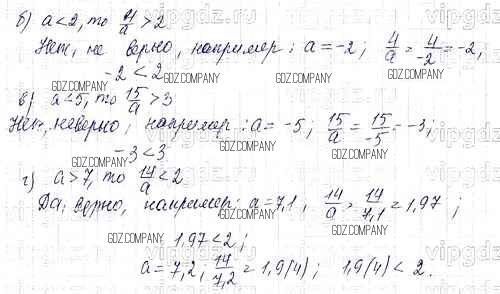 б) a<2, то 4/a >2
Нет, не верно, например: a=-2; 4/a = 4/-2 = -2,
-2<2
GDZ.COMPANY GDZ.COMPANY GDZ.COMPANY
в) a<5, то 15/a >3
Нет, неверно, например: a= -5; 15/a = 15/-5 = -3;
-3<3
GDZ.COMPANY GDZ.COMPANY GDZ.COMPANY
г) a>7, то 14/a <2
Да, верно, например: a=7,1, 14/a = 14/7,1 = 1,97;
GDZ.COMPANY GDZ.COMPANY GDZ.COMPANY
1,97<2;
GDZ.COMPANY
a=7,2, 14/7,2 = 1,9(4); 1,9(4) < 2.
vipgdz.ru